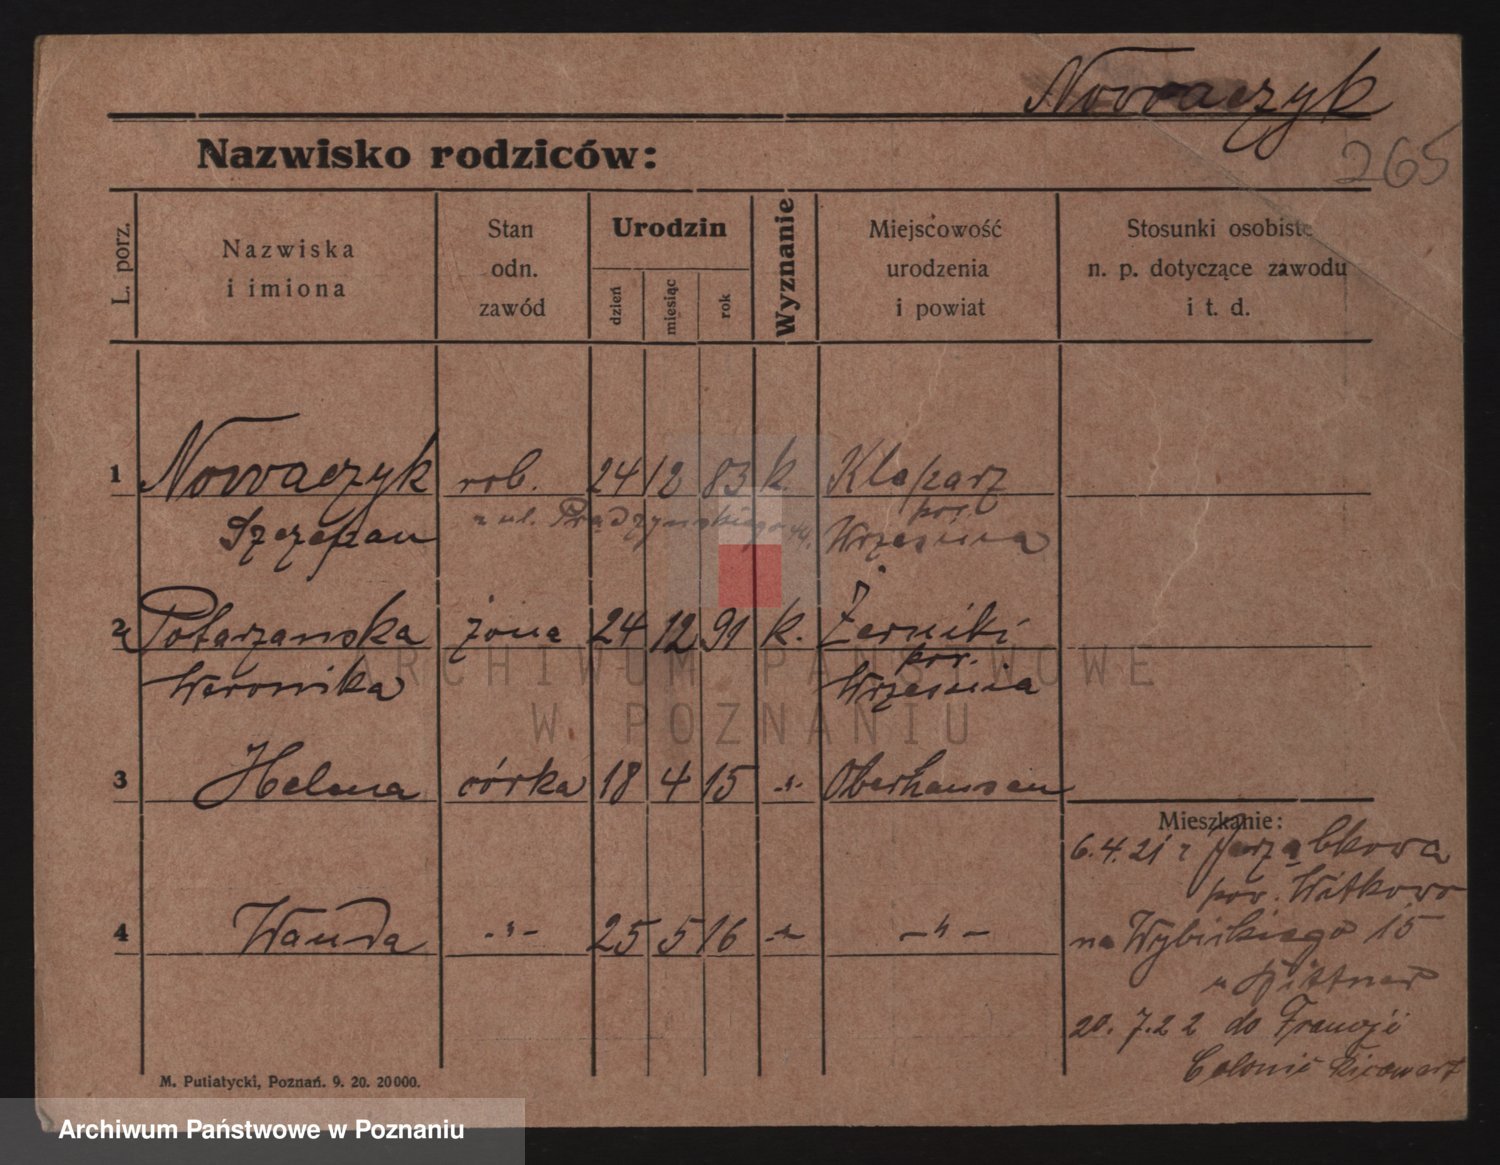 Nowaczyk
265
Nazwisko rodziców:
L. porz.
Nazwiska
i imiona
Stan
odn.
zawód
Urodzin
dzień
miesiąc
rok
Wyznanie
Miejscowość
urodzenia
i powiat
Stosunki osobiste
n. p. dotyczące zawodu
i t. d.
1 Nowaczyk rob. 24 12 83 k. Kleparz
pow.
Szczepan z ul. Prądzyńskiego 44. Września
2 Potarzanska żona 24 12 91 k. Żerniki
pow.
Weronika Września
3 Helena córka 18 4 15 -"- Oberhausen
Mieszkanie:
6.4.21 z Jarząbkowa
pow. Witkowo
4 Wanda -"- 25 5 16 -"- -"-
na Wybickiego 15
u Bittner
20.7.22 do Francji
Colonie
M. Putiatycki, Poznań. 9. 20. 20000.
ARCHIWUM PAŃSTWOWE
W POZNANIU
Archiwum Państwowe w Poznaniu